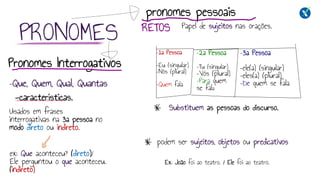 PRONOMES
Pronomes Interrogativos
-Que, Quem, Qual, Quantas
-características.
Usados em frases
interrogativas na 3a pessoa no
modo direto ou indireto.
ex: Que aconteceu? (direto)/
Ele perguntou o que aconteceu.
(indireto)
pronomes pessoais
RETOS Papel de sujeitos nas orações.
-1a Pessoa
-Eu (singular)
-Nós (plural)
-Quem fala
-2a Pessoa
-Tu (singular)
-Vós (plural)
-Para quem
se fala
-3a Pessoa
-ele(a) (singular)
-eles(a) (plural)
-De quem se fala
Substituem as pessoas do discurso.
podem ser sujeitos, objetos ou predicativos
Ex: João foi ao teatro. / Ele foi ao teatro.